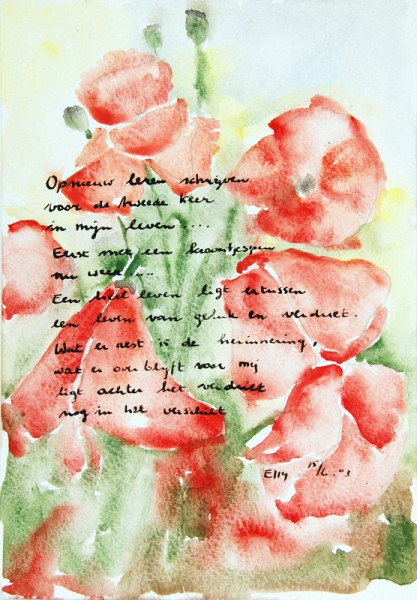 Opnieuw leren schrijven
voor de tweede keer
in mijn leven....
Eerst met een kroontjespen
nu weer....
Een heel leven ligt ertussen
een leven van geluk en verdriet.
Wat er rest is de herinnering,
wat er overblyft voor mij
ligt achter het verdriet
nog in het verschiet
Elly 15/ 03